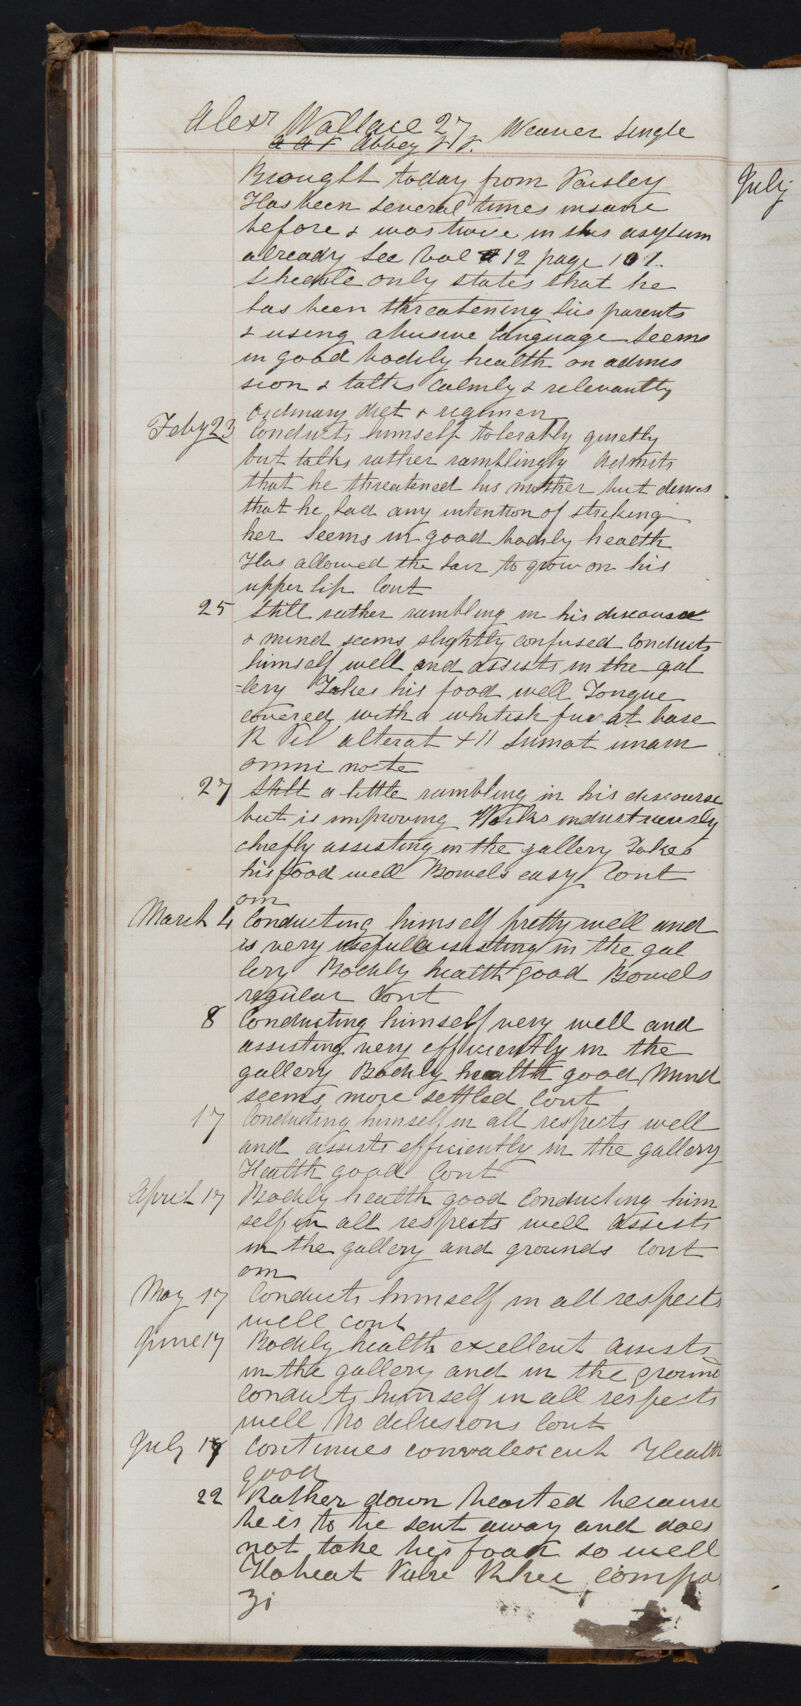 Alexr Wallace 27 Weaver Single
Abbey
Brought today from Paisley
Has been several times insane
before & was twice in this asylum
already See Vol 12 page 101.
Schedule only states that he
has been threatening his parents
& using abusive language Seems
in good bodily health on admis
sion & talks calmly & relevantly
Ordinary diet & regimen
Feby 23 Conducts himself tolerably quietly
but talks rather ramblingly Admits
that he threatened his mother but denies
that he had any intention of striking
her Seems in good bodily health
Has allowed the hair to grow on his
upper lip Cont
25 Still rather rambling in his discourse
& mind seems slightly confused Conducts
himself well and assists in the gal
-lery Takes his food well Tongue
covered with a whitish fur at base
R Pil alterat + 11 Sumat unam
omni nocte
27 Still a little rambling in his discourse
but is improving Works industriously
chiefly assisting in the gallery Takes
his food well Bowels easy Cont
om
March 4 Conducting himself pretty well and
is very useful assisting in the gal
lery Bodily health good Bowels
regular Cont
8 Conducting himself very well and
assisting very efficiently in the
gallery Bodily health good Mind
seems more settled Cont
17 Conducting himself in all respects well
and assists efficiently in the gallery
Health good Cont
April 17 Bodily health good Conducting him
self in all respects well Assists
in the gallery and grounds Cont
om
May 17 Conducts himself in all respects
well cont
June 17 Bodily health excellent Assists
in the gallery and in the ground
Conducts himself in all respects
well No delusions Cont
July 17 Continues convalescent Health
good
22 Rather down hearted because
he is to be sent away and does
not take his food so well
Habeat Pulv Rhei compo
ʒi
July